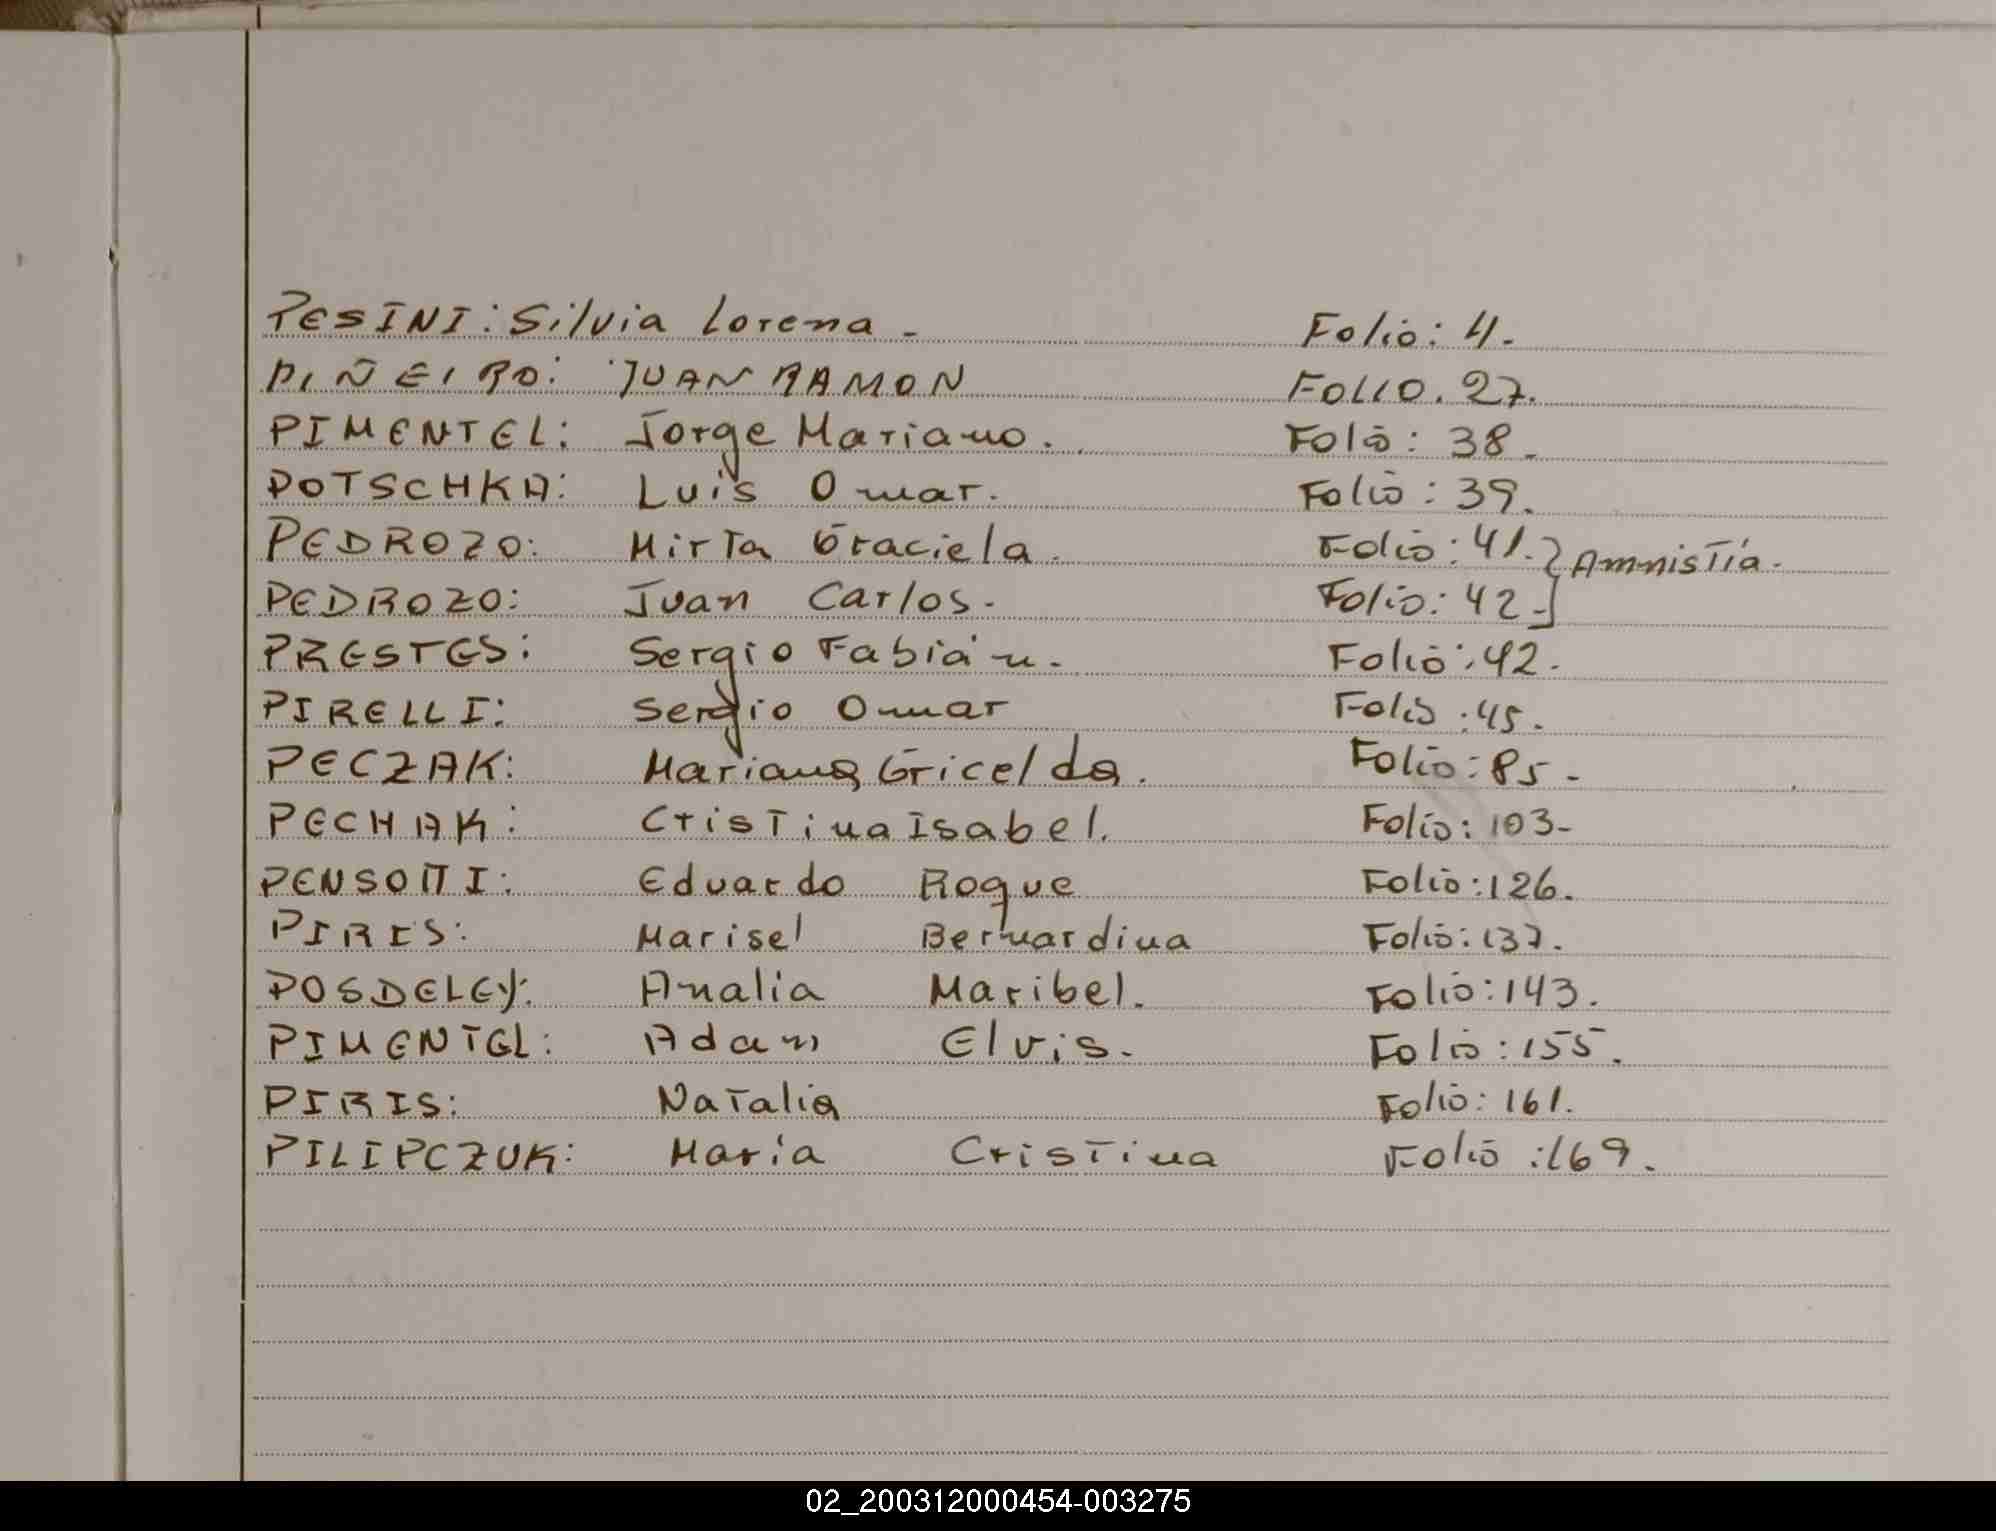 PESINI: Silvia Lorena - Folio: 4.
PIÑEIRO: JUAN RAMON FOLIO. 27.
PIMENTEL: Jorge Mariano. Folio: 38.
POTSCHKA: Luis Omar. Folio: 39.
PEDROZO: Mirta Graciela. Folio: 41. } Amnistía.
PEDROZO: Juan Carlos. Folio: 42-
PRESTES: Sergio Fabián. Folio: 42.
PIRELLI: Sergio Omar Folio: 45.
PECZAK: Mariana Gricelda. Folio: 85-
PECHAK: Cristina Isabel. Folio: 103-
PENSOTTI: Eduardo Roque Folio: 126.
PIRIS: Marisel Bernardina Folio: 137.
POSDELEY: Analia Maribel. Folio: 143.
PIMENTEL: Adan Elvis. Folio: 155.
PIRIS: Natalia Folio: 161.
PILIPCZUK: María Cristina Folio: 169.
02_200312000454-003275